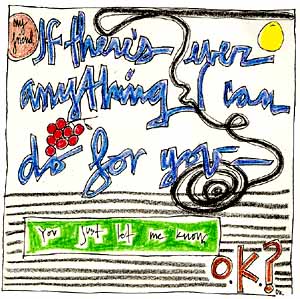 my
friend
If there's ever
anything I can
do for you—
you just let me know,
O.K.?